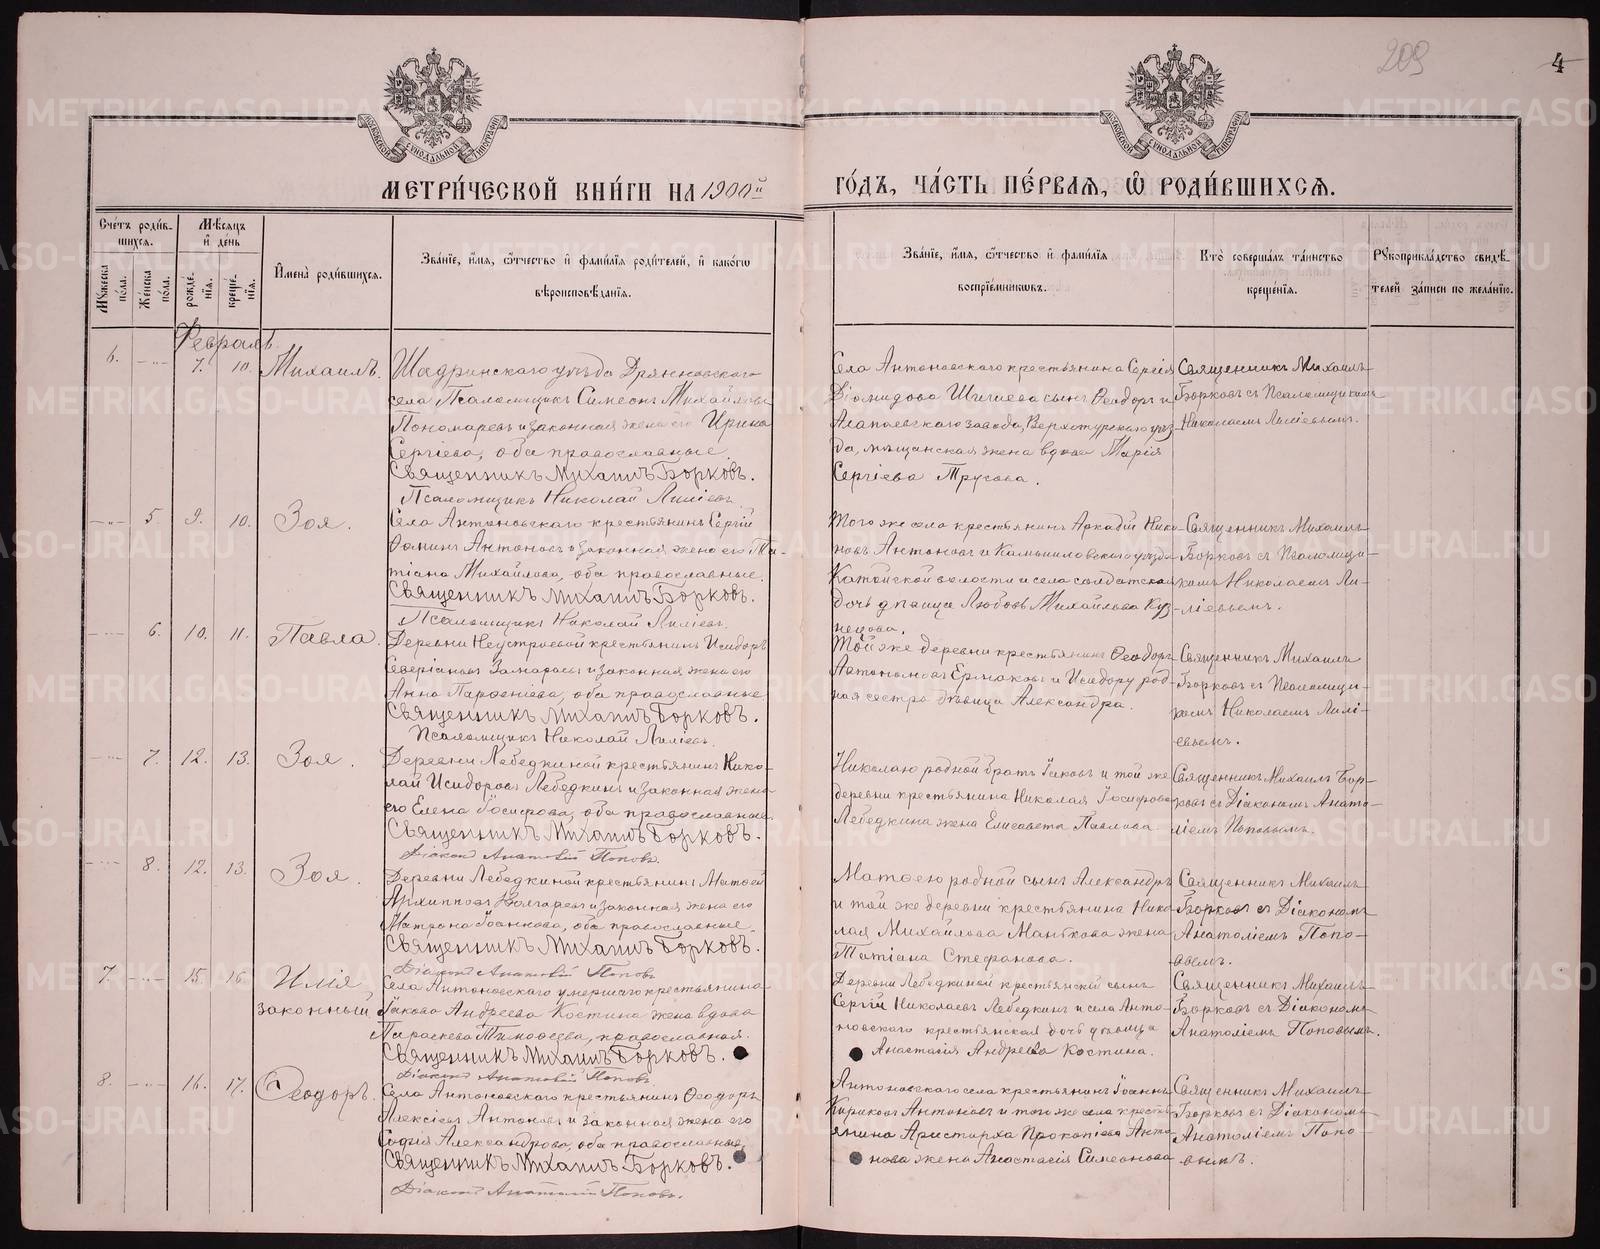 209
4
МОСКОВСКОЙ СѴНОДАЛЬНОЙ ТИПОГРАФІИ
МОСКОВСКОЙ СѴНОДАЛЬНОЙ ТИПОГРАФІИ
МЕТРИ́ЧЕСКОЙ КНИ́ГИ НА 1900й
ГО́ДЪ, ЧА́СТЬ ПЕ́РВАѦ, Ѽ РОДИ́ВШИХСѦ.
Сче́тъ роди́в-
шихсѧ.
Мꙋ́жеска по́ла.
Же́нска по́ла.
Мѣ́сѧцъ
и҆ де́нь
рожде́-
нїѧ.
креще́-
нїѧ.
И҆мена̀ роди́вшихсѧ.
Зва́нїе, и҆́мѧ, ѻ҆́тчество и҆ фами́лїѧ роди́телей, и҆ како́гѡ
вѣроисповѣ́данїѧ.
Зва́нїе, и҆́мѧ, ѻ҆́тчество и҆ фами́лїѧ
воспрїе́мникѡвъ.
Кто̀ соверша́лъ та́инство
креще́нїѧ.
Рꙋкоприкла́дство свидѣ́-
телей за́писи по жела́нїю.
Февраль
6. -"- 7. 10. Михаилъ.
Шадринскаго уѣзда Дрянновскаго
села Псаломщикъ Симеонъ Михайловъ
Пономаревъ и законная жена его Ирина
Сергіева, оба православные.
Священникъ Михаилъ Борковъ.
Псаломщикъ Николай Лиліевъ
Села Антоновскаго крестьянина Сергія
Діомидова сынъ Ѳеодоръ и
Алапаевскаго завода, Верхотурскаго уѣз-
да, мѣщанская жена вдова Марія
Сергіева Трусова.
Священникъ Михаилъ
Борковъ съ Псаломщикомъ
Николаемъ Лиліевымъ.
-"- 5. 9. 10. Зоя.
Села Антоновскаго крестьянинъ Сергій
Ѳоминъ Антоновъ и законная жена его Та-
тіана Михайлова, оба православные.
Священникъ Михаилъ Борковъ.
Псаломщикъ Николай Лиліевъ.
Того же села крестьянинъ Аркадій Ники-
новъ Антоновъ и Камышловскаго уѣзда
Катайской волости и села солдатская
дочь дѣвица Любовь Михайлова Куз-
нецова.
Священникъ Михаилъ
Борковъ съ Псаломщи-
комъ Николаемъ Ли-
ліевымъ.
-"- 6. 10. 11. Павла
Деревни Неустроевой крестьянинъ Исидоръ
Северіановъ и законная жена его
Анна Парѳеніева, оба православные
Священникъ Михаилъ Борковъ.
Псаломщикъ Николай Лиліевъ.
Той же деревни крестьянинъ Ѳеодоръ
Автономовъ Ермаковъ и Исидору род-
ная сестра дѣвица Александра.
Священникъ Михаилъ
Борковъ съ Псаломщи-
комъ Николаемъ Лилі-
евымъ.
-"- 7. 12. 13. Зоя.
Деревни Лебедкиной крестьянинъ Нико-
лай Исидоровъ Лебедкинъ и законная жена
его Елена Іосифова, оба православные.
Священникъ Михаилъ Борковъ.
Діаконъ Анатолій Поповъ.
Николаю родной братъ Іаковъ и той же
деревни крестьянина Николая Іосифова
Лебедкина жена Елисавета Павлова
Священникъ Михаилъ Бор-
ковъ съ Діакономъ Анато-
ліемъ Поповымъ.
-"- 8. 12. 13. Зоя.
Деревни Лебедкиной крестьянинъ Матѳей
Архипповъ и законная жена его
Матрона Іоаннова, оба православные.
Священникъ Михаилъ Борковъ.
Діаконъ Анатолій Поповъ
Матѳею родной сынъ Александръ
и той же деревни крестьянина Нико-
лая Михайлова Манькова жена
Татіана Стефанова.
Священникъ Михаилъ
Борковъ съ Діакономъ
Анатоліемъ Попо-
вымъ.
7. -"- 15. 16. Илія
законный
Села Антоновскаго умершаго крестьянина
Іакова Андреева Костина жена вдова
Параскева Тимоѳеева, православная.
Священникъ Михаилъ Борковъ.
Діаконъ Анатолій Поповъ.
Деревни Лебедкиной крестьянскій сынъ
Сергій Николаевъ Лебедкинъ и села Анто-
новскаго крестьянская дочь дѣвица
Анастасія Андреева Костина.
Священникъ Михаилъ
Борковъ съ Діакономъ
Анатоліемъ Поповымъ.
8. -"- 16. 17. Ѳеодоръ.
Села Антоновскаго крестьянинъ Ѳеодоръ
Алексіевъ Антоновъ и законная жена его
Софія Александрова, оба православные.
Священникъ Михаилъ Борковъ.
Діаконъ Анатолій Поповъ.
Антоновскаго села крестьянинъ Іоаннъ
Кириковъ Антоновъ и того же села кресть-
янина Аристарха Прокопіева Анто-
нова жена Анастасія Симеонова
Священникъ Михаилъ
Борковъ съ Діакономъ
Анатоліемъ Попо-
вымъ.
METRIKI.GASO-URAL.RU